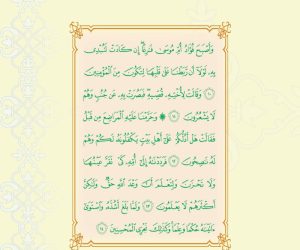 وَأَصْبَحَ فُؤَادُ أُمِّ مُوسَىٰ فَارِغًا إِن كَادَتْ لَتُبْدِي
بِهِ لَوْلَا أَن رَّبَطْنَا عَلَىٰ قَلْبِهَا لِتَكُونَ مِنَ الْمُؤْمِنِينَ
١٠ وَقَالَتْ لِأُخْتِهِ قُصِّيهِ فَبَصُرَتْ بِهِ عَن جُنُبٍ وَهُمْ
لَا يَشْعُرُونَ ١١ ۞ وَحَرَّمْنَا عَلَيْهِ الْمَرَاضِعَ مِن قَبْلُ
فَقَالَتْ هَلْ أَدُلُّكُمْ عَلَىٰ أَهْلِ بَيْتٍ يَكْفُلُونَهُ لَكُمْ وَهُمْ
لَهُ نَاصِحُونَ ١٢ فَرَدَدْنَاهُ إِلَىٰ أُمِّهِ كَيْ تَقَرَّ عَيْنُهَا
وَلَا تَحْزَنَ وَلِتَعْلَمَ أَنَّ وَعْدَ اللَّهِ حَقٌّ وَلَٰكِنَّ
أَكْثَرَهُمْ لَا يَعْلَمُونَ ١٣ وَلَمَّا بَلَغَ أَشُدَّهُ وَاسْتَوَىٰ
آتَيْنَاهُ حُكْمًا وَعِلْمًا وَكَذَٰلِكَ نَجْزِي الْمُحْسِنِينَ ١٤